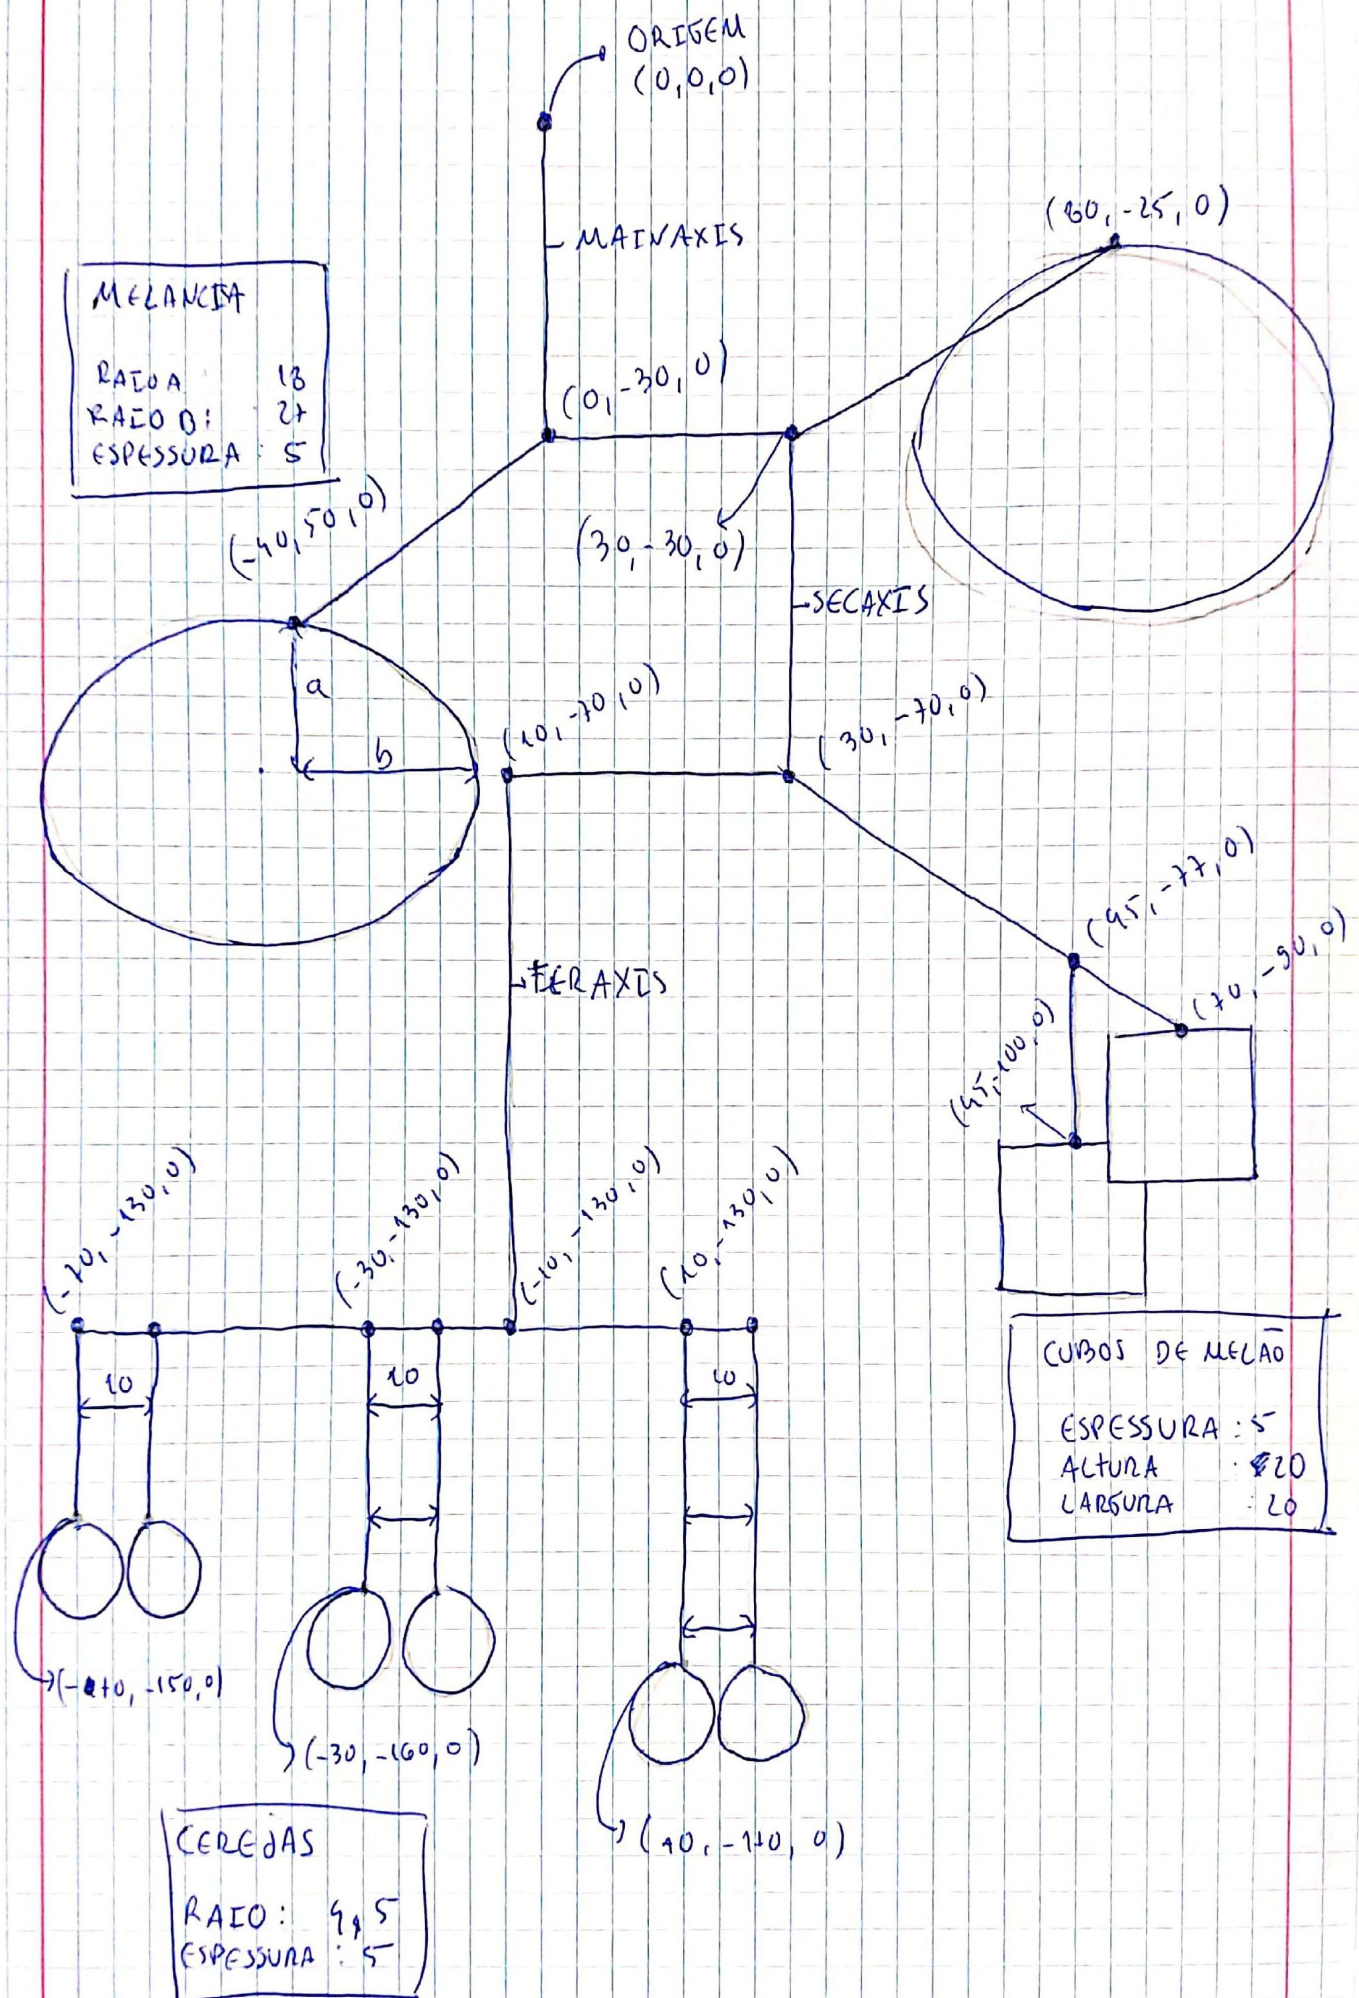 ORIGEM
(0,0,0)
MAINAXIS
(60,-25,0)
MELANCIA
RAIO A 18
RAIO B: 27
ESPESSURA: 5
(0,-30,0)
(-40,50,0)
(30,-30,0)
SECAXIS
a
b
(10,-70,0)
(30,-70,0)
(45,-77,0)
(70,-90,0)
TERAXIS
(45,-100,0)
(-70,-130,0)
(-30,-130,0)
(-10,-130,0)
(10,-130,0)
10
10
10
CUBOS DE MELÃO
ESPESSURA: 5
ALTURA: 20
LARGURA: 20
(-70,-150,0)
(-30,-160,0)
(10,-170,0)
CEREJAS
RAIO: 4,5
ESPESSURA: 5